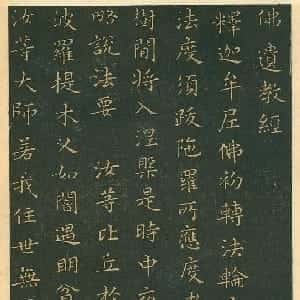 佛遺教經
釋迦牟尼佛初轉法輪
法度須跋陀羅所應度
樹間將入涅槃是時中夜
略說法要 汝等比丘於
波羅提木叉如闇遇明貧
汝等大師若我住世無